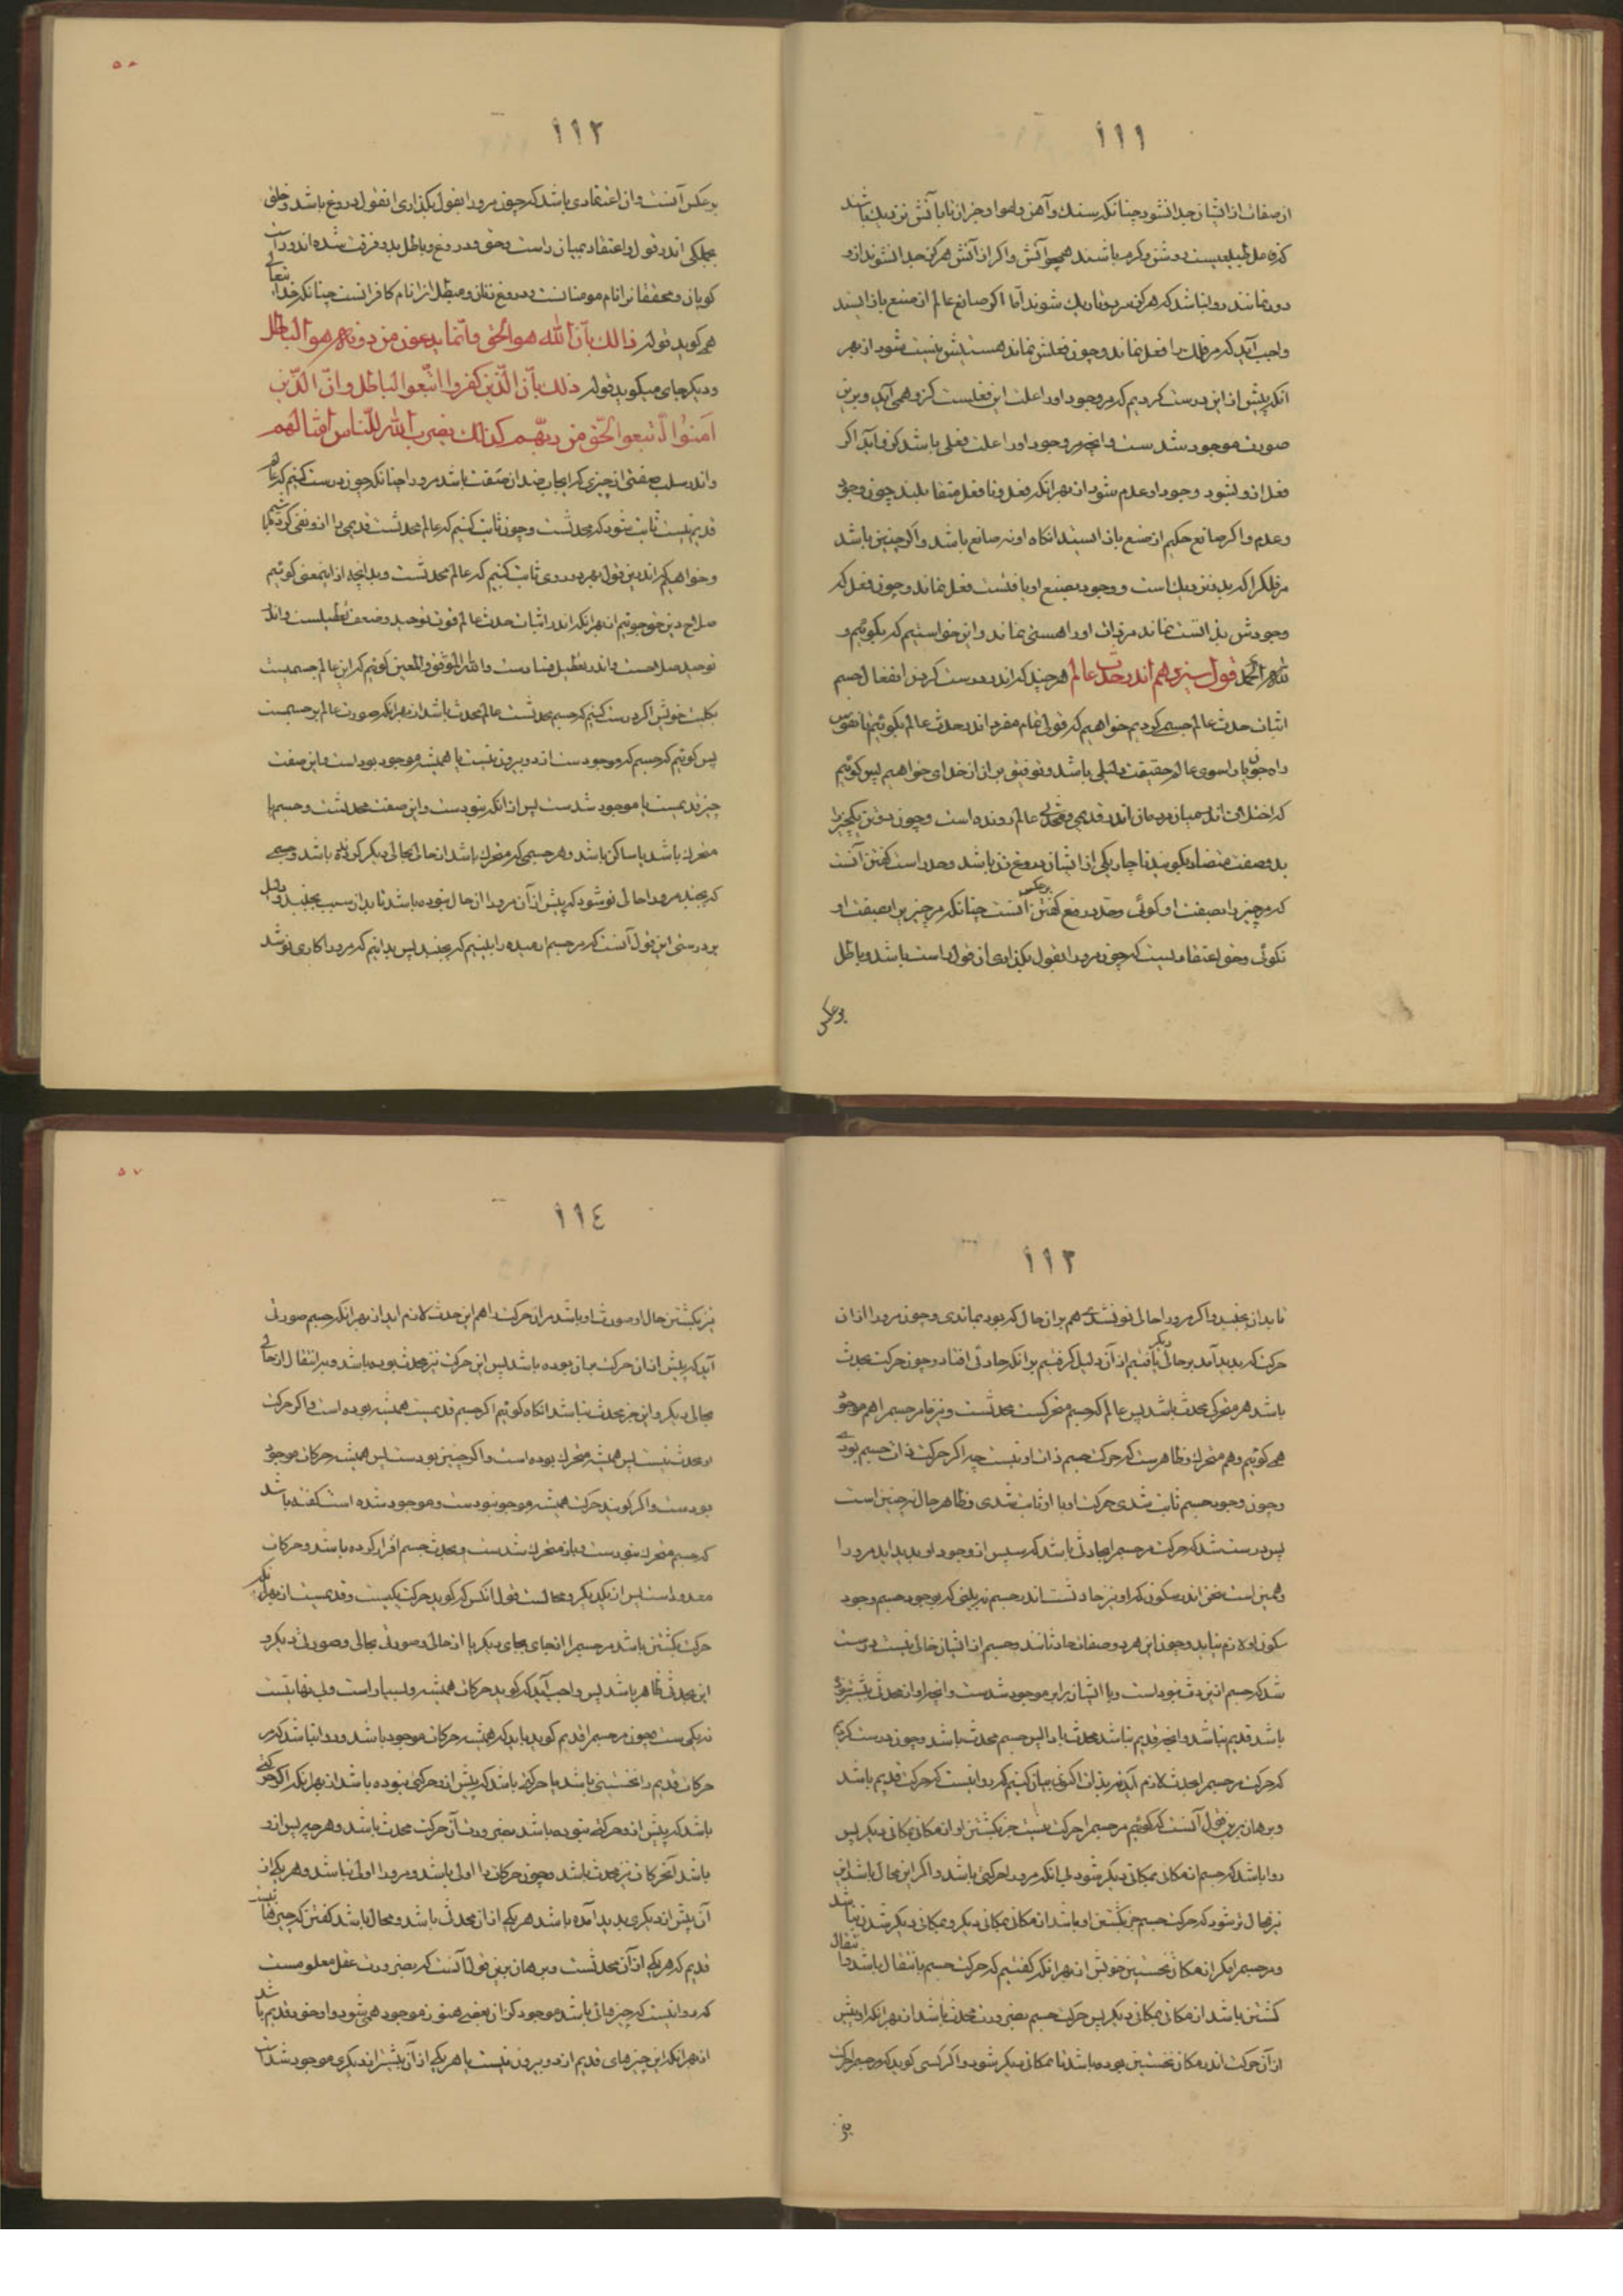 ١١١
از صفات از ایشان جدا نشود چنانکه سنک و آهن و هوا و جزان تا با آتش نزدیک باشند
روشن و کرم باشند همچو آتش و اکر از آتش هرکز جدا نشوند ازو
دور نمانند روا نباشد که هرکز سرد و تاریک شوند اما اکر صانع عالم از صنع باز ایستد
واجب آید که مر فلک را فعل نماند و چون فعلش نماند هستیش نیست شود از بهر
آنکه پیش ازین درست کردیم که مر وجود او را علت این فعلیست کزو همی آید و برین
صورت موجود شدست و انچه مر وجود او را علت فعلی باشد کزو آید اکر
فعل ازو بشود وجود او عدم شود از بهر انکه فعل و نا فعل متقابلند چون وجود
و عدم و اکر صانع حکیم از صنع باز ایستد انکاه او نه صانع باشد و اکر چنین باشد
مر فلک را که بدو نزدیک است و وجود بصنع او یافتست فعل نماند و چون فعل که
وجودش بذانست نماند مر ذات او را هستی نماند و این خواستیم که بکوئیم و
لله الحمد قول سیزدهم اندر حدث عالم هر چند که اندر درست کردن انفعال جسم
اثبات حدث عالم جسم کردیم خواهیم که قولی تمام مفرد اندر حدث عالم بکوئیم تا نفوس
راه جویان را سوی عالم حقیقت دلیلی باشد و توفیق بران از خدای خواهیم پس کوئیم
که اختلاف اندر میان مردمان اندر قدیمی و محدثی عالم رونده است و چون دو تن یکچیز را
بدو صفت متضاد بکویند ناچار یکی از ایشان دروغ زن باشد و حد راست کفتن آنست
که مر چیز را بصفت او کوئی و حد دروغ کفتن برعکس انست چنانکه مر چیز را بصفت او
نکوئی و حق اعتقادیست که چون مرورا بقول بکذاری ان قول راست باشد و باطل
برعکس
٥٦
١١٢
برعکس آنست و ان اعتقادی باشد که چون مرورا بقول بکذاری ان قول دروغ باشد و خلق
بجملکی اندر قول و اعتقاد بمیان راست و حق و دروغ و باطل بدو فرقت شده اند و راست
کویان و محققانرا نام مومنانست و دروغ زنان و مبطلانرا نام کافرانست چنانکه خدا تعالی
همی کوید قوله ذالک بأن الله هو الحق وأنما یدعون من دونه هو الباطل
و دیکر جای میکوید قوله ذلک بأن الذین کفروا اتبعوا الباطل وان الذین
امنوا اتبعوا الحق من ربهم کذلک یضرب الله للناس امثالهم
و اندر سلب صفتی از چیزی که ایجاب ضد ان صفت باشد مرورا چنانکه چون درست کنیم که عالم
قدیم نیست ثابت شود که محدثست و چون ثابت کنیم که عالم محدثست قدیمی را ازو نفی کرده باشیم
و خواهیم که اندرین قول بهر دو روی ثابت کنیم که عالم محدثست و بدانچه از اینمعنی کوئیم
صلاح دین خو جوئیم از بهر انکه اندر اثبات حدث عالم قوت توحید و ضعف تعطیلست و اندر
توحید صلاحست و اندر تعطیل فسادست و الله الموفق و المعین کوئیم که این عالم جسمیست
بکلیت خویش اکر درست کنیم که جسم محدثست عالم محدث باشد از بهر انکه صورت عالم بر جسمست
پس کوئیم که جسم که موجودست از دو بیرون نیست یا همیشه موجود بود است و این صفت
چیز قدیمست یا موجود شدست پس از انکه نبودست و این صفت محدثست و جسم یا
متحرک باشد یا ساکن باشد و هر جسمی که متحرک باشد از حالی بحالی دیکر کردنده باشد و جسمی
که بجنبد مرورا حالی نو شود که پیش از آن مرورا ان حال نبوده باشد تا بدان سبب بجنبید و دلیل
بر درستی این قول آنست که مر جسم ارمیده را بینیم که بجنبد پس بدانیم که مرورا کاری نو شد
١١٣
تا بدان بجنبید و اکر مرورا حالی نو نشدی هم بران حال که بود بماندی و چون مرورا از ان
حرکت که بدید آمد بر حالی دیکر یافتیم از آن دلیل کرفتیم برانکه حادثی افتاد و چون حرکت محدث
باشد هر متحرکی محدث باشد پس عالم که جسم متحرکست محدثست و نیز ما مر جسم را هم موجود
همی کوئیم و هم متحرک و ظاهرست که حرکت جسم ذات او نیست چه اکر حرکت ذات جسم بودی
و چون وجود جسم ثابت شدی حرکت او با او ثابت شدی و ظاهر حال نه چنین است
پس درست شد که حرکت مر جسم را حادثی باشد که سپس از وجود او بدید اید مرورا
و همین است سخن اندر سکون که او نیز حادثست اندر جسم نه بینی که بوجود جسم وجود
سکون او لازم نیاید و چون این هر دو صفات حادثانند و جسم از ایشان خالی نیست درست
شد که جسم ازین دو پیش نبوداست و با ایشان برابر موجود شدست و انچه او از محدثی پیشتر نبوده
باشد قدیم نباشد و انچه قدیم نباشد محدث باشد پس جسم محدث باشد و چون درست کردیم
که حرکت مر جسم را حدث لازم آید بر بدان اکنون بیان کنیم که روا نیست که حرکت قدیم باشد
و برهان برین قول آنست که کوئیم مر جسم را حرکت نیست جز بکشتن او از مکانی بمکانی دیکر پس
روا باشد که جسم از مکانی بمکانی دیکر شود بی انکه مرورا حرکتی باشد و اکر این محال باشد این
نیز محال تر شود که حرکت جسم جز بکشتن او باشد از مکانی بمکانی دیکر و بمکانی دیکر شدن نباشد
مر جسم را مکر از مکان نخستین خویش از بهر انکه کفتیم که حرکت جسم با نتقال باشد و انتقال
کشتن باشد از مکانی بمکانی دیکر پس حرکت جسم بضرورت محدث باشد از بهر انکه او پیش
از آن حرکت اندر مکان نخستین بوده باشد تا بمکان دیکر شود و اکر کسی کوید که مر جسم را حرکت
جز
٥٧
١١٤
جز بکشتن حال او صورت او باشد مر ان حرکت را هم این حدث لازم اید از بهر انکه جسم صورتی
آید که پیش از ان حرکت بران بوده باشد پس این حرکت نیز محدث بوده باشد و بر انتقال از حالی
بحالی دیکر و این جز محدث نباشد انکاه کوئیم اکر جسم قدیمست همیشه بوده است و اکر حرکت
او محدث نیست پس همیشه متحرک بوده است و اکر چنین بودست پس همیشه حرکات موجود
بودست و اکر کویند حرکت همیشه موجود نبودست و موجود شده است کفته باشد
که جسم متحرک نبودست و باز متحرک شدست و بحدث جسم اقرار کرده باشد و حرکات
معدود است پس از یکدیکر و محالست قول انکس که کوید حرکت یکیست و قدیمست از بهر انکه
حرکت کشتن باشد مر جسم را از جای بجای دیکر یا از حالی و صورتی بحالی و صورتی دیکر و
این محدثی ظاهر باشد پس واجب آید که کوید حرکات همیشه و بسیار است و بی نهایتست
نه یکی است و چون مر جسم را قدیم کوید باید که همیشه حرکات موجود باشد و روا نباشد که مر
حرکات قدیم را نخستینی باشد یا حرکتی باشد که پیش ازو حرکتی نبوده باشد از بهر انکه اکر حرکتی
باشد که پیش ازو حرکتی نبوده باشد بضرورت آن حرکت محدث باشد و هر چه پس ازو
باشد آنحرکات نیز محدث باشد و چون حرکات را اولی باشد و مرورا اولی نباشد و هر یکی از
آن پیش از دیکری بدید آمده باشد هر یکی از ان محدثی باشد و محال باشد کفتن که چیزهاست
قدیم که هر یکی از آن محدثست و برهان برین قول آنست که بضرورت عقل معلومست
که روا نیست که چیزهائی باشد موجود کزان بعضی هنوز موجود همی شود و او خود قدیم باشد
از بهر انکه این چیزهای قدیم از دو بیرون نیست یا هر یکی از آن پیشتر از دیکری موجود شدست